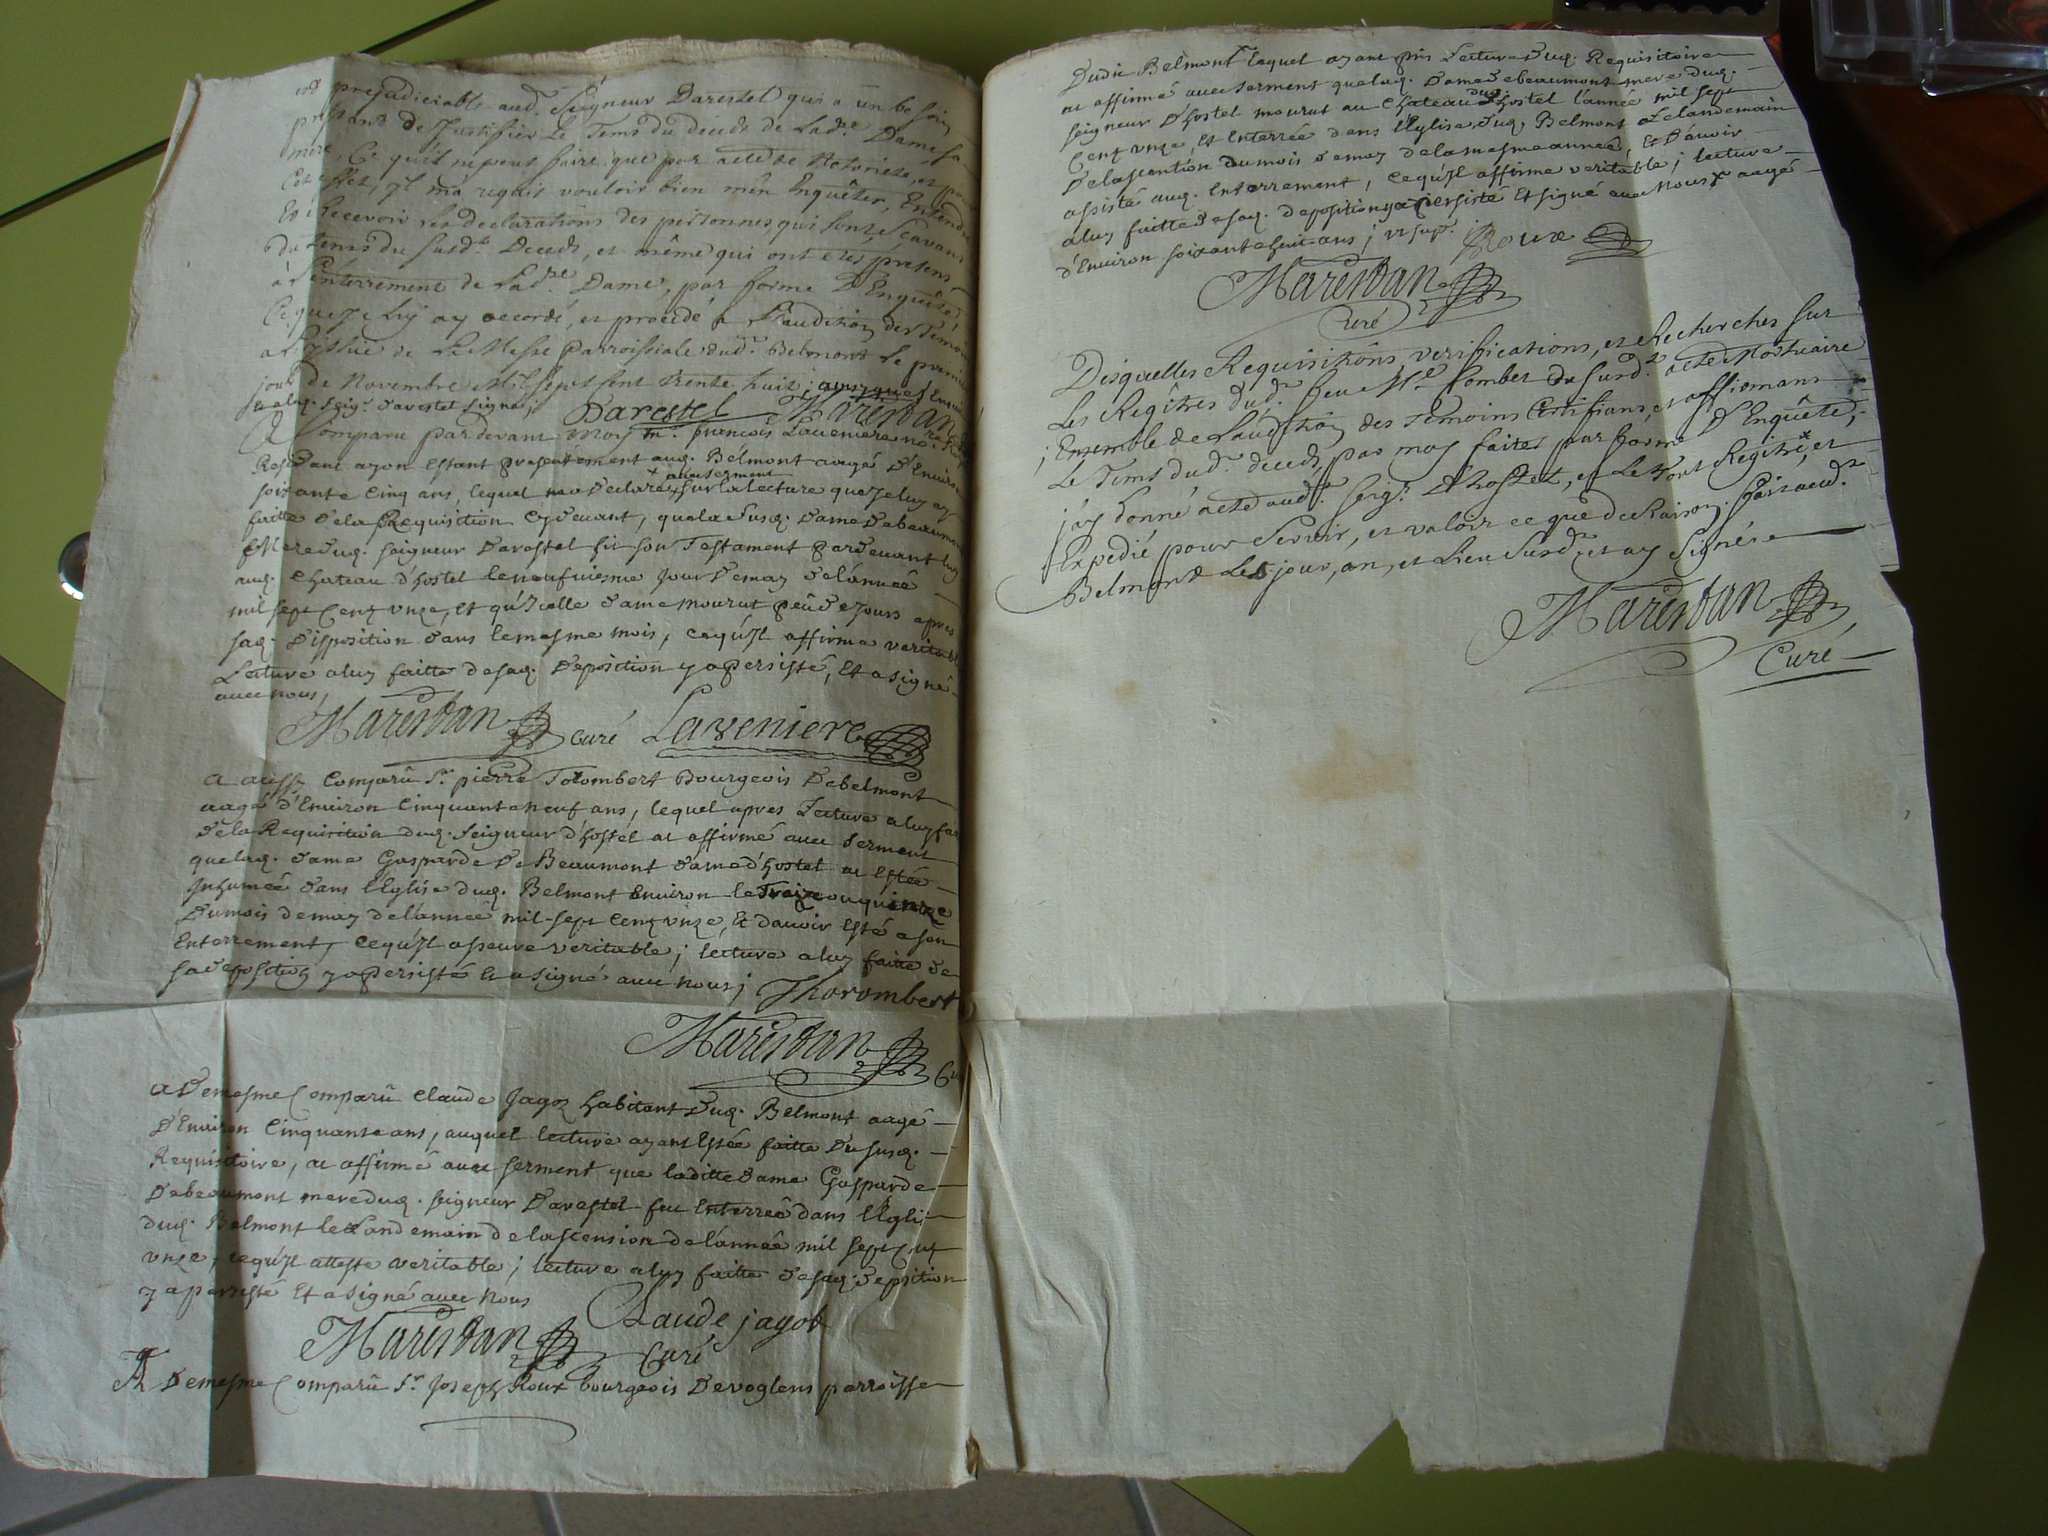 est prejudiciable aud.t Seigneur Darestel qui a un besoin
pressant de Justifier le Tems du décds de Lad.te Dame sa
mere, Ce qu'il ne peut faire que par acte de Notorieté, et pour
Cet effet, Jl m'a requis vouloir bien m'en Enquêter, Entendre
Et Recevoir les declarations des personnes qui sont Scavans
du tems du susd.t Decds, et même qui ont etes presens
à L'enterrement de Lad.te Dame, par forme D'Enquête,
Ce que Je luy ay accordé, et procédé a L'audition des Temoins
a L'issue de La Messe Parroissiale dud.t Belmont Le premier
jour de Novembre Mil sept sent trente huit;
led. Seig.r Darestel signé;
Darestel Marestan
A Comparu pardevant moy M.e francois Laveniere no.re
Residant ayon Estant presentement aud. Belmont aagé D'Environ
soixante Cinq ans, lequel ma Declaré avec serment sur la lecture que Je luy ay
faitte De la Requisition Cydevant, que la Susd. Dame Debeaumont
Mere dud. seigneur Darestel fit son Testament pardevant luy
aud. Chateau d'hostel le neufuiesme Jour Demay De l'année
mil sept Cent vnze, Et qu'Jcelle Dame mourut peu De Jours apres
sad. Disposition dans le mesme mois, ce qu'Jl affirme veritable
Lecture a luy faitte de sad. Deposition y a persisté, Et a signé
avec nous,
Marestan Curé Laveniere
A aussy Comparû S.r pierre Torombert Bourgeois Debelmont
aagé d'Environ Cinquante neuf ans, lequel apres Lecture a luy faitte
De la Requisition dud. Seigneur d'hostel at affirmé avec serment
que lad. dame Gasparde De Beaumont dame d'hostel at Estée
Jnhumée dans l'Eglise dud. Belmont Environ le Traize ou quinze
Du mois de may de l'année mil-sept Cent vnze, Et davoir Esté a son
Enterrement, ce qu'Jl asseure veritable; lecture a luy faitte de
sa deposition y a persisté Et a signé avec nous; Thorombert
Marestan Cu
A Demesme Comparû Claude Jagoz habitant Dud. Belmont aagé
D'Environ Cinquante ans, auquel lecture ayant Estée faitte Du susd.
Requisitoire, at affirmé avec serment que laditte Dame Gasparde
Debeaumont mere dud. seigneur Darestel fut Enterreé dans l'Egli
dud. Belmont le Landemain de lascension de l'année mil sept Cent
vnze, ce qu'Jl atteste veritable; lecture a luy faitte de sad. deposition
y a persisté Et a signé avec nous
Claude jagot
Marestan Curé
A Demesme Comparû S.r Joseph Roux bourgeois Devoglens parroisse
Dudit Belmont lequel ayant pris Lecture Dud. Requisitoire
at affirmé avec serment que lad. Dame Debeaumont mere dud.
seigneur D'hostel mourut au Chateau dud. hostel l'année mil sept
Cent vnze, Et Enterrée dans l'Eglise Dud. Belmont Le landemain
De lascention du mois de may de la mesme année, Et D'avoir
assisté aud. Enterrement, ce qu'Jl affirme veritable; lecture
a luy faitte de sad. deposition y a persisté Et signé avec Nous aagé
d'Environ soixante huit ans; vt sup.
JRoux
Marestan
Curé
Desquelles Requisitions, verifications, et Recherches sur
Les Regitres dud.t feu M.e Combet Du susd.t acte Mortuaire
; Ensemble de L'audition des Temoins Certifians, et affirmans
Le Tems dud.t decds, par moy faites par forme D'Enquête,
j'ay donné acte aud.t Seig.r Dhostel, et Le tout Regitré, et
Expedié pour servir, et valoir ce que de Raison. fait aud.t
Belmont Les jour, an, et Lieu susd.ts et ay signé
Marestan
Curé